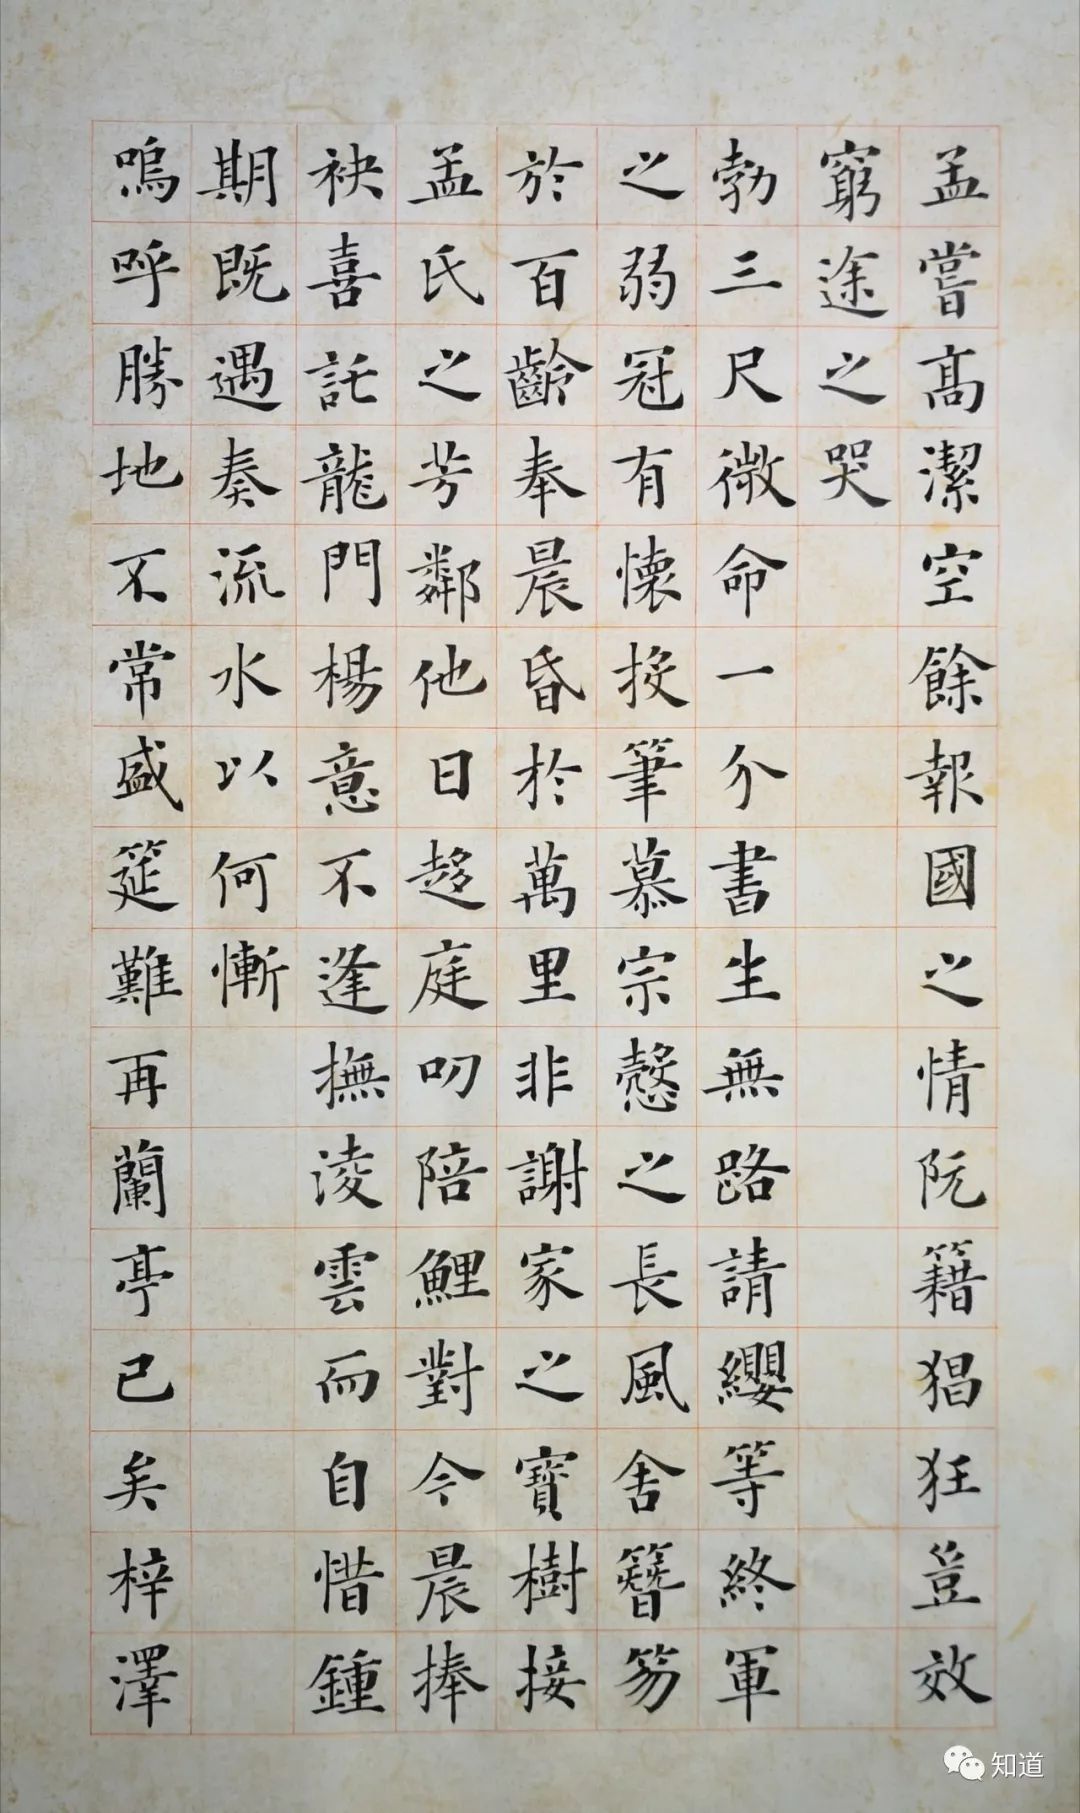 孟嘗高潔空餘報國之情阮籍猖狂豈效
窮途之哭
勃三尺微命一介書生無路請纓等終軍
之弱冠有懷投筆慕宗愨之長風舍簪笏
於百齡奉晨昏於萬里非謝家之寶樹接
孟氏之芳鄰他日趍庭叨陪鯉對今晨捧
袂喜託龍門楊意不逢撫淩雲而自惜鍾
期既遇奏流水以何慚
嗚呼勝地不常盛筵難再蘭亭已矣梓澤
知道